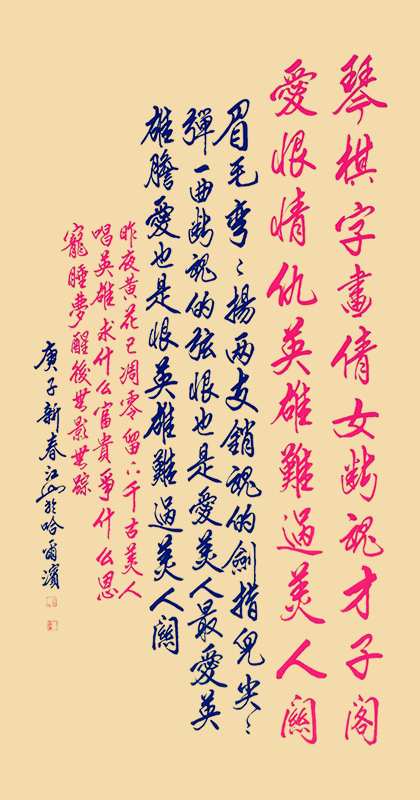 琴棋字畫倩女斷魂才子閣
愛恨情仇英雄難過美人關
眉毛彎〻揚兩支銷魂的劍指兒尖〻
彈一曲斷魂的弦恨也是愛美人最愛英
雄膽愛也是恨英雄難過美人關
昨夜黃花已凋零留下千古美人
唱英雄求什么富貴爭什么恩
寵睡夢醒後無影無踪
庚子新春江山於哈爾濱